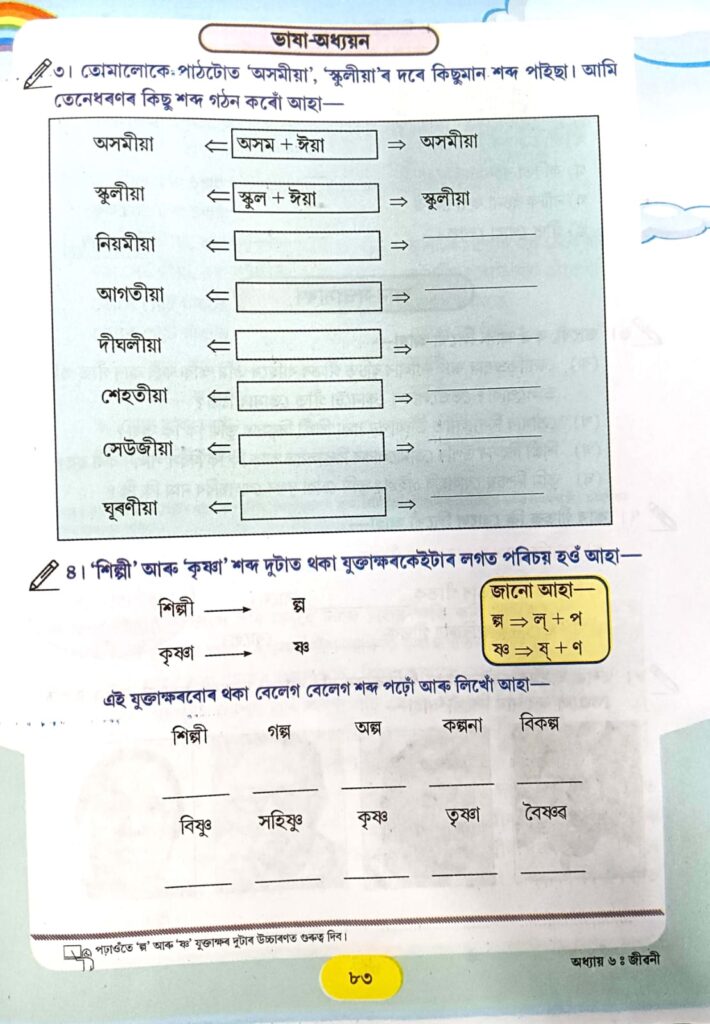 ভাষা-অধ্যয়ন
৩। তোমালোকে পাঠটোত ‘অসমীয়া’, ‘স্কুলীয়া’ৰ দৰে কিছুমান শব্দ পাইছা। আমি
তেনেধৰণৰ কিছু শব্দ গঠন কৰোঁ আহা—
অসমীয়া ⇐ অসম + ঈয়া ⇒ অসমীয়া
স্কুলীয়া ⇐ স্কুল + ঈয়া ⇒ স্কুলীয়া
নিয়মীয়া ⇐ ⇒
আগতীয়া ⇐ ⇒
দীঘলীয়া ⇐ ⇒
শেহতীয়া ⇐ ⇒
সেউজীয়া ⇐ ⇒
ঘূৰণীয়া ⇐ ⇒
৪। ‘শিল্পী’ আৰু ‘কৃষ্ণা’ শব্দ দুটাত থকা যুক্তাক্ষৰকেইটাৰ লগত পৰিচয় হওঁ আহা—
শিল্পী → ল্প
কৃষ্ণা → ষ্ণ
জানো আহা—
ল্প ⇒ ল্ + প
ষ্ণ ⇒ ষ্ + ণ
এই যুক্তাক্ষৰবোৰ থকা বেলেগ বেলেগ শব্দ পঢ়োঁ আৰু লিখোঁ আহা—
শিল্পী গল্প অল্প কল্পনা বিকল্প
বিষ্ণু সহিষ্ণু কৃষ্ণ তৃষ্ণা বৈষ্ণৱ
পঢ়াওঁতে ‘ল্প’ আৰু ‘ষ্ণ’ যুক্তাক্ষৰ দুটাৰ উচ্চাৰণত গুৰুত্ব দিব।
অধ্যায় ৬ : জীৱনী
৮৩